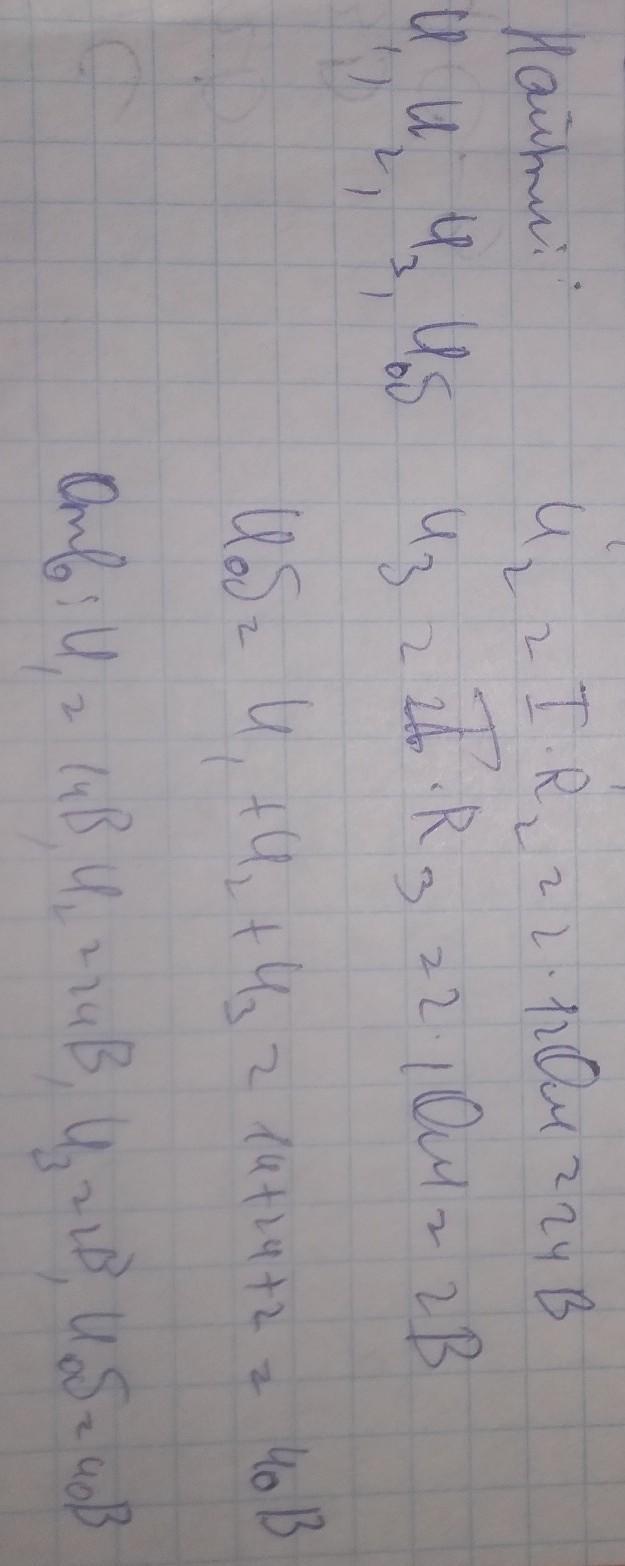 Найти:
U₁, U₂, U₃, Uоб
U₂ = I · R₂ = 2 · 12Ом = 24 В
U₃ = I · R₃ = 2 · 1Ом = 2В
Uоб = U₁ + U₂ + U₃ = 14 + 24 + 2 = 40 В
Отв: U₁ = 14В, U₂ = 24В, U₃ = 2В, Uоб = 40В